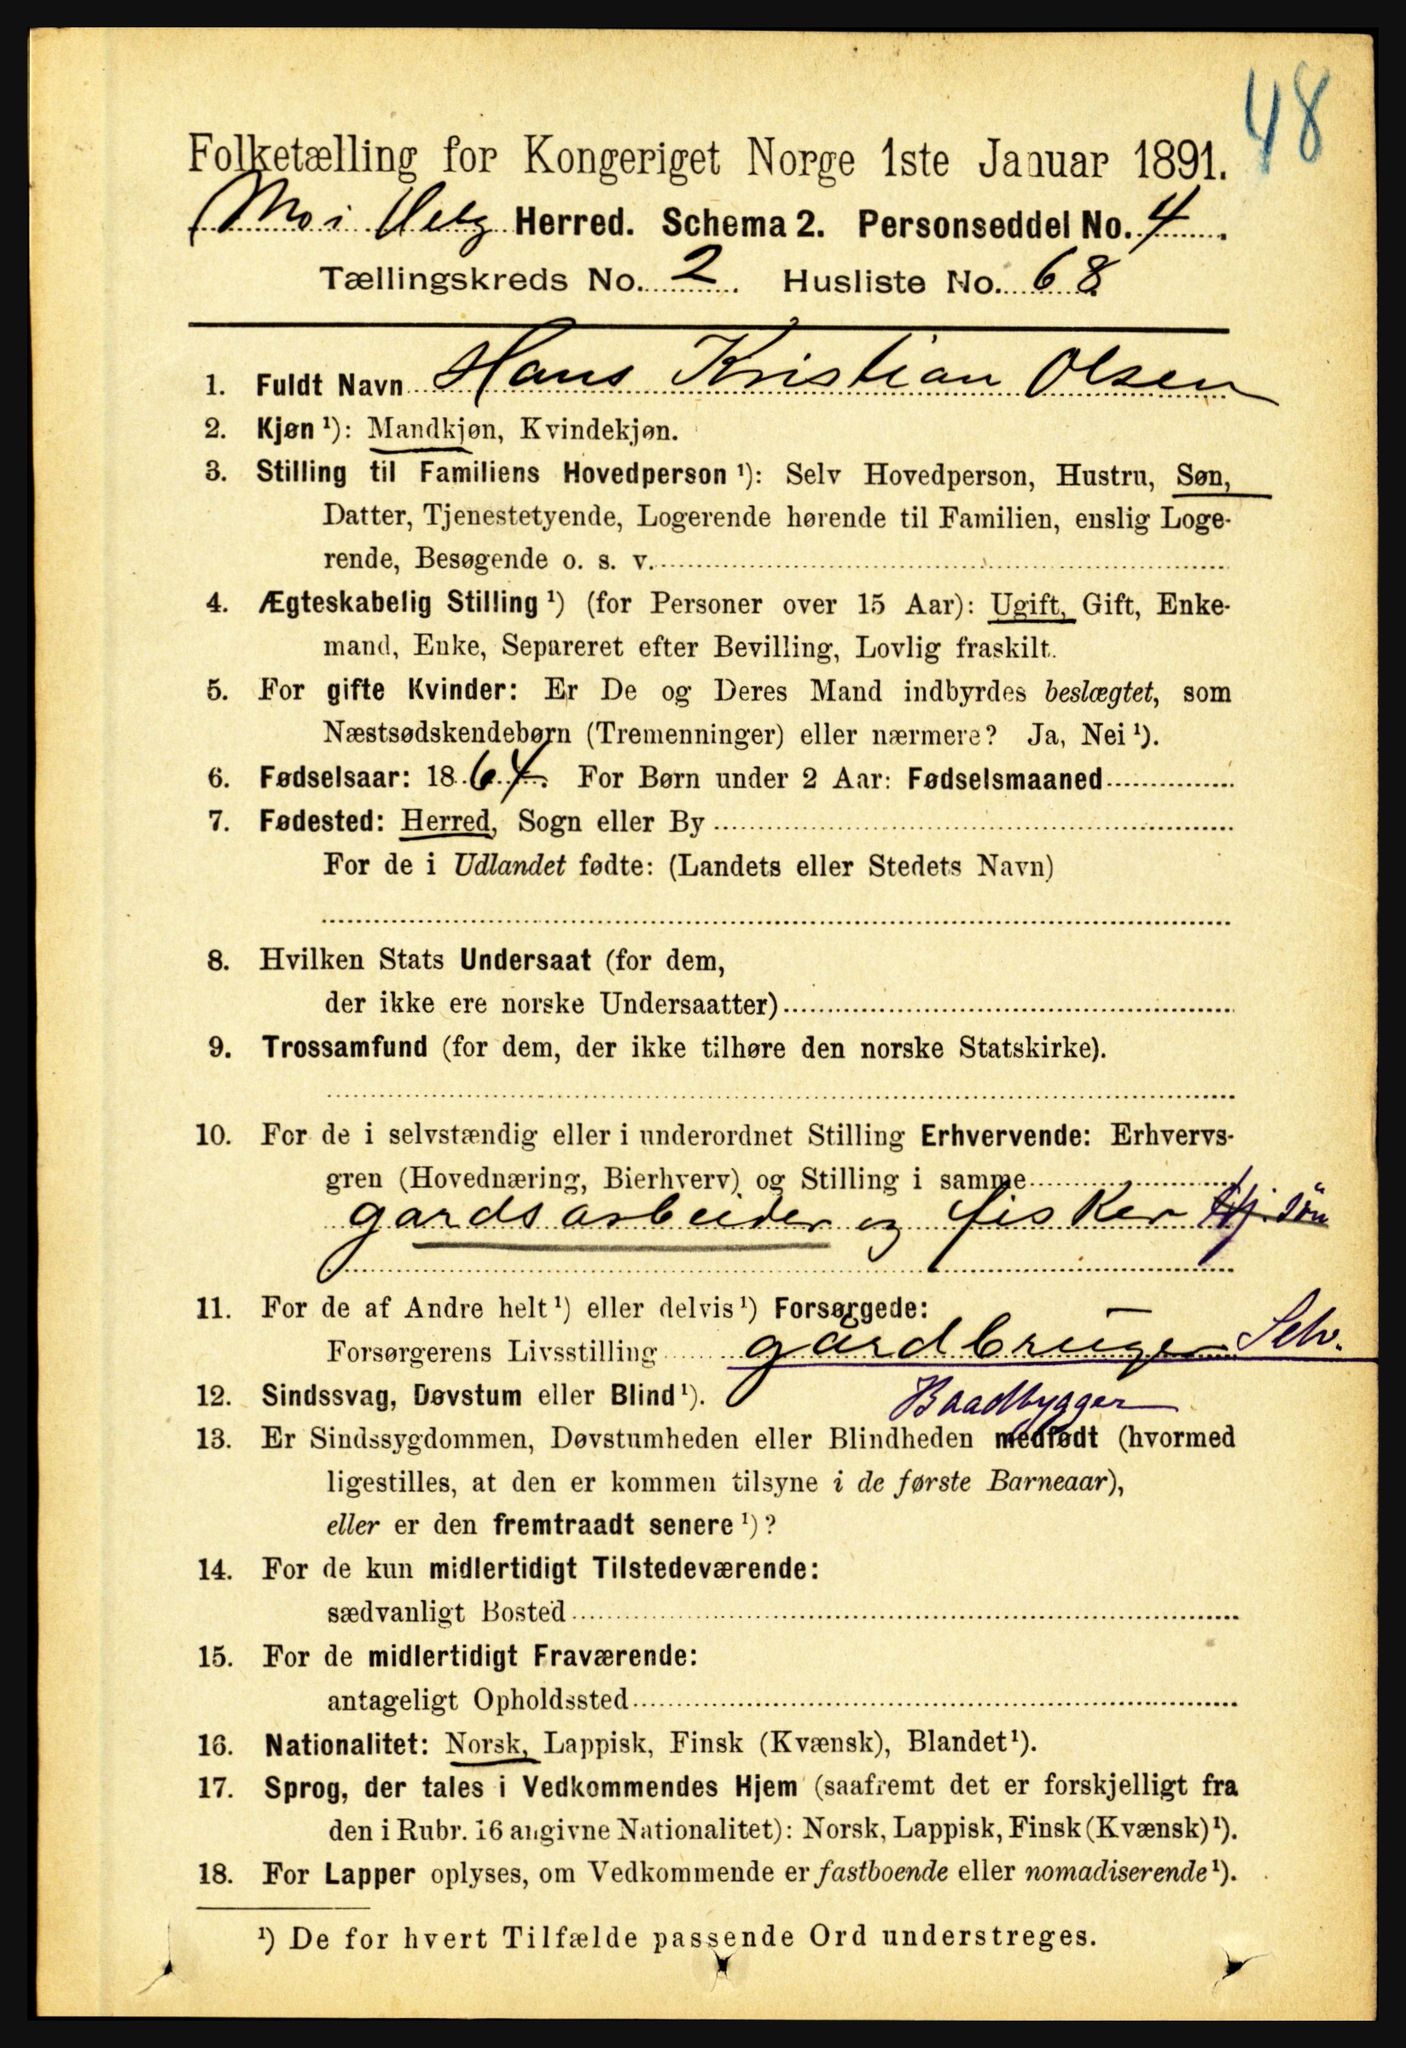 48
Folketælling for Kongeriget Norge 1ste Januar 1891.
Mo i Helg Herred. Schema 2. Personseddel No. 4.
Tællingskreds No. 2. Husliste No. 68.
1. Fuldt Navn Hans Kristian Olsen
2. Kjøn ¹): Mandkjøn, Kvindekjøn.
3. Stilling til Familiens Hovedperson ¹): Selv Hovedperson, Hustru, Søn,
Datter, Tjenestetyende, Logerende hørende til Familien, enslig Loge-
rende, Besøgende o. s. v.
4. Ægteskabelig Stilling ¹) (for Personer over 15 Aar): Ugift, Gift, Enke-
mand, Enke, Separeret efter Bevilling, Lovlig fraskilt.
5. For gifte Kvinder: Er De og Deres Mand indbyrdes beslægtet, som
Næstsødskendebørn (Tremenninger) eller nærmere? Ja, Nei ¹).
6. Fødselsaar: 1864. For Børn under 2 Aar: Fødselsmaaned
7. Fødested: Herred, Sogn eller By
For de i Udlandet fødte: (Landets eller Stedets Navn)
8. Hvilken Stats Undersaat (for dem,
der ikke ere norske Undersaatter)
9. Trossamfund (for dem, der ikke tilhøre den norske Statskirke).
10. For de i selvstændig eller i underordnet Stilling Erhvervende: Erhvervs-
gren (Hovednæring, Bierhverv) og Stilling i samme
gardsarbeider og fisker søn
11. For de af Andre helt ¹) eller delvis ¹) Forsørgede:
Forsørgerens Livsstilling gårdbruger Selv.
12. Sindssvag, Døvstum eller Blind ¹). Baadbygger
13. Er Sindssygdommen, Døvstumheden eller Blindheden medfødt (hvormed
ligestilles, at den er kommen tilsyne i de første Barneaar),
eller er den fremtraadt senere ¹)?
14. For de kun midlertidigt Tilstedeværende:
sædvanligt Bosted
15. For de midlertidigt Fraværende:
antageligt Opholdssted
16. Nationalitet: Norsk, Lappisk, Finsk (Kvænsk), Blandet ¹).
17. Sprog, der tales i Vedkommendes Hjem (saafremt det er forskjelligt fra
den i Rubr. 16 angivne Nationalitet): Norsk, Lappisk, Finsk (Kvænsk) ¹).
18. For Lapper oplyses, om Vedkommende er fastboende eller nomadiserende ¹).
¹) De for hvert Tilfælde passende Ord understreges.